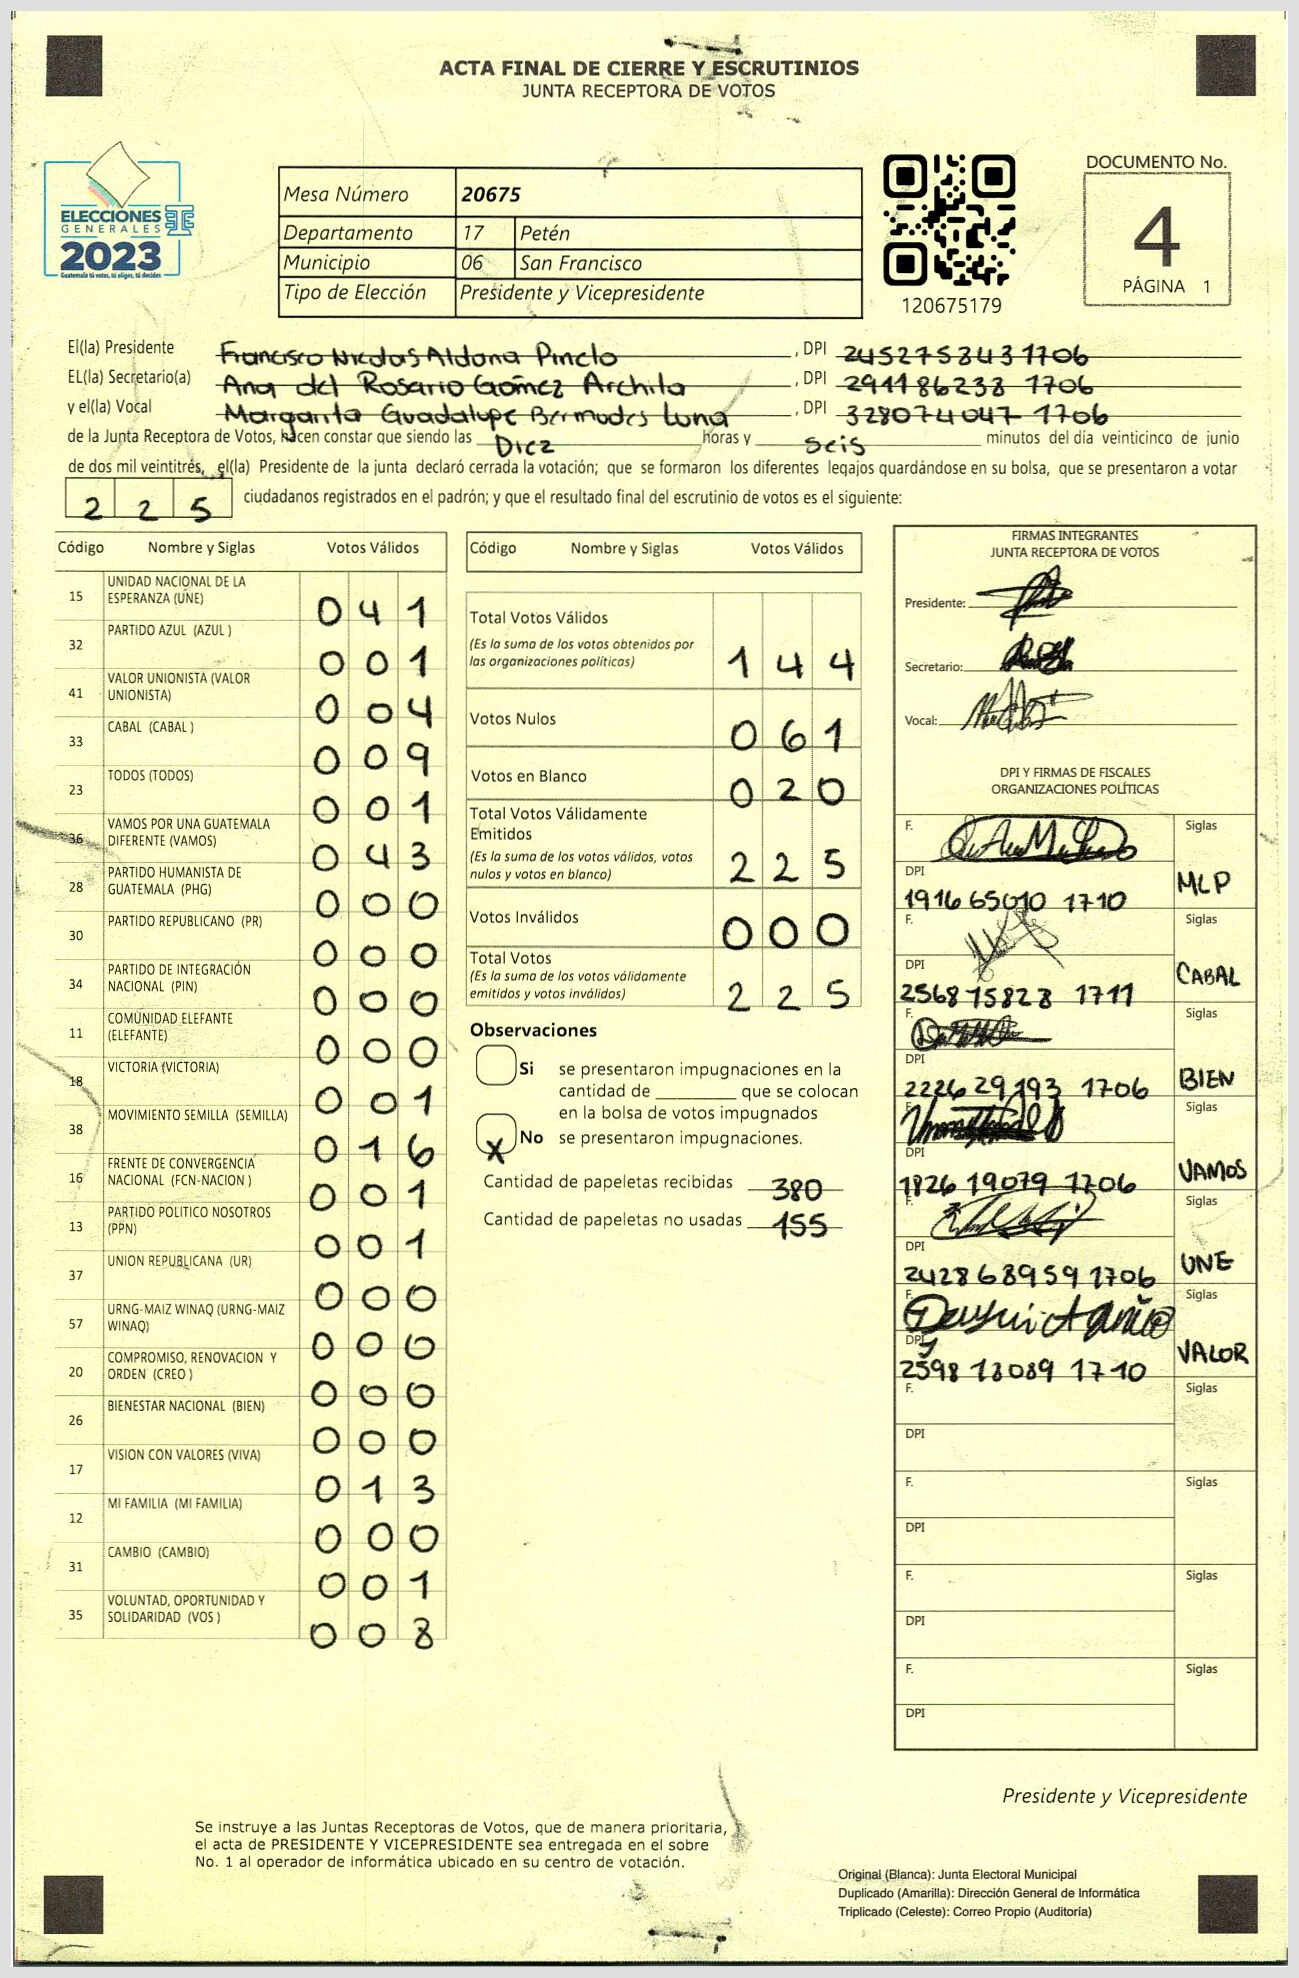 ACTA FINAL DE CIERRE Y ESCRUTINIOS
JUNTA RECEPTORA DE VOTOS
ELECCIONES
GENERALES
2023
Guatemala tú votas, tú eliges, tú decides
Mesa Número 20675
Departamento 17 Petén
Municipio 06 San Francisco
Tipo de Elección Presidente y Vicepresidente
120675179
DOCUMENTO No.
4
PÁGINA 1
El(la) Presidente Francisco Nicolas Aldana Pinelo, DPI 2452758431706
EL(la) Secretario(a) Ana del Rosario Gómez Archila, DPI 291186238 1706
y el(la) Vocal Margarita Guadalupe Bermudes Luna, DPI 328074047 1706
de la Junta Receptora de Votos, hacen constar que siendo las Diez horas y seis minutos del día veinticinco de junio
de dos mil veintitrés, el(la) Presidente de la junta declaró cerrada la votación; que se formaron los diferentes legajos quardándose en su bolsa, que se presentaron a votar
225 ciudadanos registrados en el padrón; y que el resultado final del escrutinio de votos es el siguiente:
Código Nombre y Siglas Votos Válidos
15 UNIDAD NACIONAL DE LA ESPERANZA (UNE) 041
32 PARTIDO AZUL (AZUL ) 001
41 VALOR UNIONISTA (VALOR UNIONISTA) 004
33 CABAL (CABAL ) 009
23 TODOS (TODOS) 001
36 VAMOS POR UNA GUATEMALA DIFERENTE (VAMOS) 043
28 PARTIDO HUMANISTA DE GUATEMALA (PHG) 000
30 PARTIDO REPUBLICANO (PR) 000
34 PARTIDO DE INTEGRACIÓN NACIONAL (PIN) 000
11 COMUNIDAD ELEFANTE (ELEFANTE) 000
18 VICTORIA (VICTORIA) 001
38 MOVIMIENTO SEMILLA (SEMILLA) 016
16 FRENTE DE CONVERGENCIA NACIONAL (FCN-NACION ) 001
13 PARTIDO POLITICO NOSOTROS (PPN) 001
37 UNION REPUBLICANA (UR) 000
57 URNG-MAIZ WINAQ (URNG-MAIZ WINAQ) 000
20 COMPROMISO, RENOVACION Y ORDEN (CREO ) 000
26 BIENESTAR NACIONAL (BIEN) 000
17 VISION CON VALORES (VIVA) 013
12 MI FAMILIA (MI FAMILIA) 000
31 CAMBIO (CAMBIO) 001
35 VOLUNTAD, OPORTUNIDAD Y SOLIDARIDAD (VOS ) 008
Código Nombre y Siglas Votos Válidos
Total Votos Válidos 144
(Es la suma de los votos obtenidos por
las organizaciones políticas)
Votos Nulos 061
Votos en Blanco 020
Total Votos Válidamente
Emitidos 225
(Es la suma de los votos válidos, votos
nulos y votos en blanco)
Votos Inválidos 000
Total Votos 225
(Es la suma de los votos válidamente
emitidos y votos inválidos)
Observaciones
Si se presentaron impugnaciones en la
cantidad de ________ que se colocan
en la bolsa de votos impugnados
X No se presentaron impugnaciones.
Cantidad de papeletas recibidas 380
Cantidad de papeletas no usadas 155
FIRMAS INTEGRANTES
JUNTA RECEPTORA DE VOTOS
Presidente:
Secretario:
Vocal:
DPI Y FIRMAS DE FISCALES
ORGANIZACIONES POLÍTICAS
F. Siglas
DPI 1916 65010 1710 MLP
F. Siglas
DPI 2568 15828 1711 CABAL
F. Siglas
DPI 2226 29193 1706 BIEN
F. Siglas
DPI 1826 19079 1706 VAMOS
F. Siglas
DPI 2428 68959 1706 UNE
F. Siglas
DPI 2598 18089 1710 VALOR
F. Siglas
DPI
F. Siglas
DPI
F. Siglas
DPI
F. Siglas
DPI
Presidente y Vicepresidente
Se instruye a las Juntas Receptoras de Votos, que de manera prioritaria,
el acta de PRESIDENTE Y VICEPRESIDENTE sea entregada en el sobre
No. 1 al operador de informática ubicado en su centro de votación.
Original (Blanca): Junta Electoral Municipal
Duplicado (Amarilla): Dirección General de Informática
Triplicado (Celeste): Correo Propio (Auditoría)